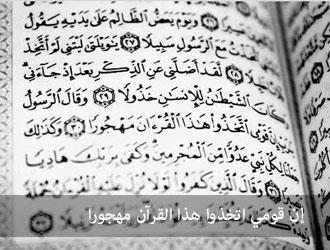 وَيَوْمَ يَعَضُّ الظَّالِمُ عَلَىٰ يَدَيْهِ يَقُولُ
مَعَ الرَّسُولِ سَبِيلًا ٢٧ يَٰوَيْلَتَىٰ لَيْتَنِي لَمْ أَتَّخِذْ
٢٨ لَقَدْ أَضَلَّنِي عَنِ الذِّكْرِ بَعْدَ إِذْ جَاءَنِي
كَانَ الشَّيْطَٰنُ لِلْإِنسَٰنِ خَذُولًا ٢٩ وَقَالَ الرَّسُولُ
قَوْمِي اتَّخَذُوا هَٰذَا الْقُرْءَانَ مَهْجُورًا ٣٠ وَكَذَٰلِكَ
لِكُلِّ نَبِيٍّ عَدُوًّا مِّنَ الْمُجْرِمِينَ وَكَفَىٰ بِرَبِّكَ هَادِيًا
وَقَالَ الَّذِينَ كَفَرُوا لَوْلَا نُزِّلَ عَلَيْهِ الْقُرْءَانُ جُمْلَةً
إن قومي اتخذوا هذا القرآن مهجورا